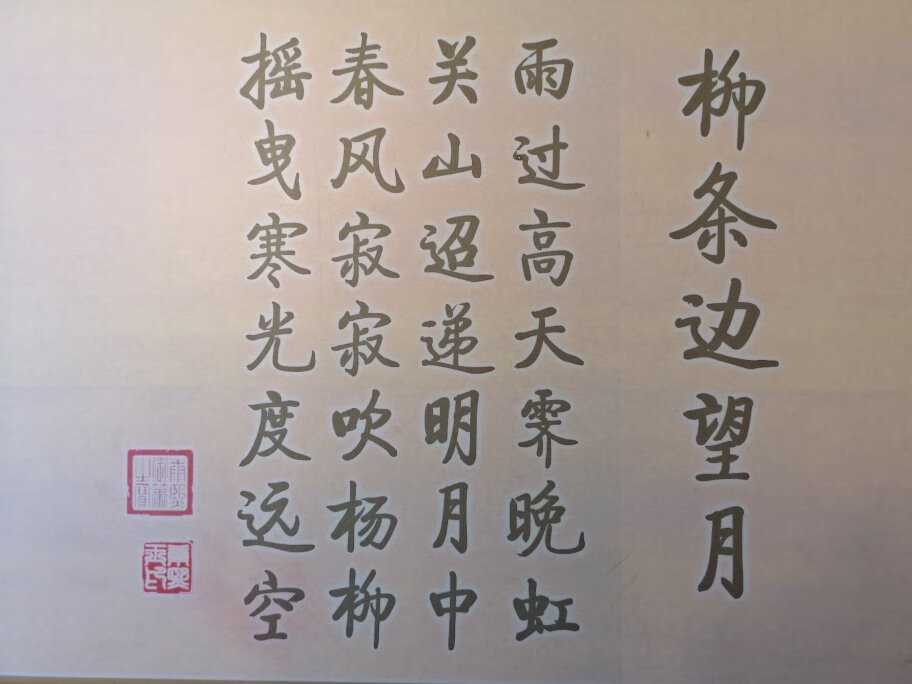 柳条边望月
雨过高天霁晚虹
关山迢递明月中
春风寂寂吹杨柳
摇曳寒光度远空